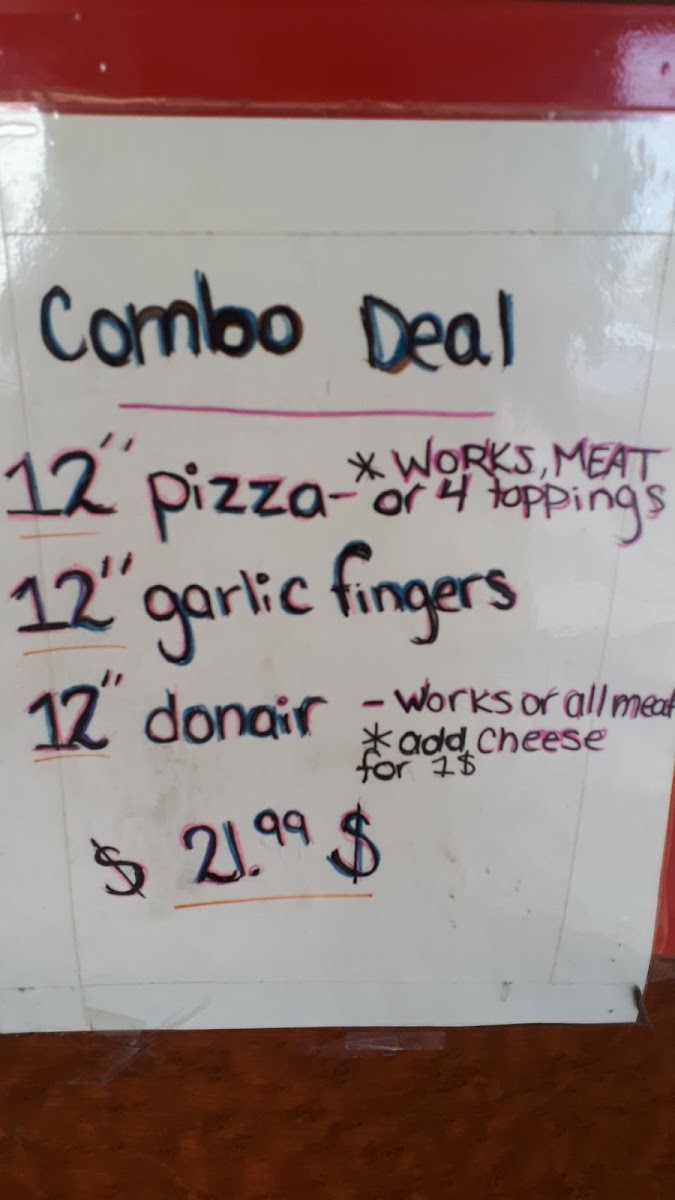 Combo Deal
12" pizza - * WORKS, MEAT
or 4 toppings
12" garlic fingers
12" donair - Works or all meat
* add cheese
for 1$
$ 21.99 $